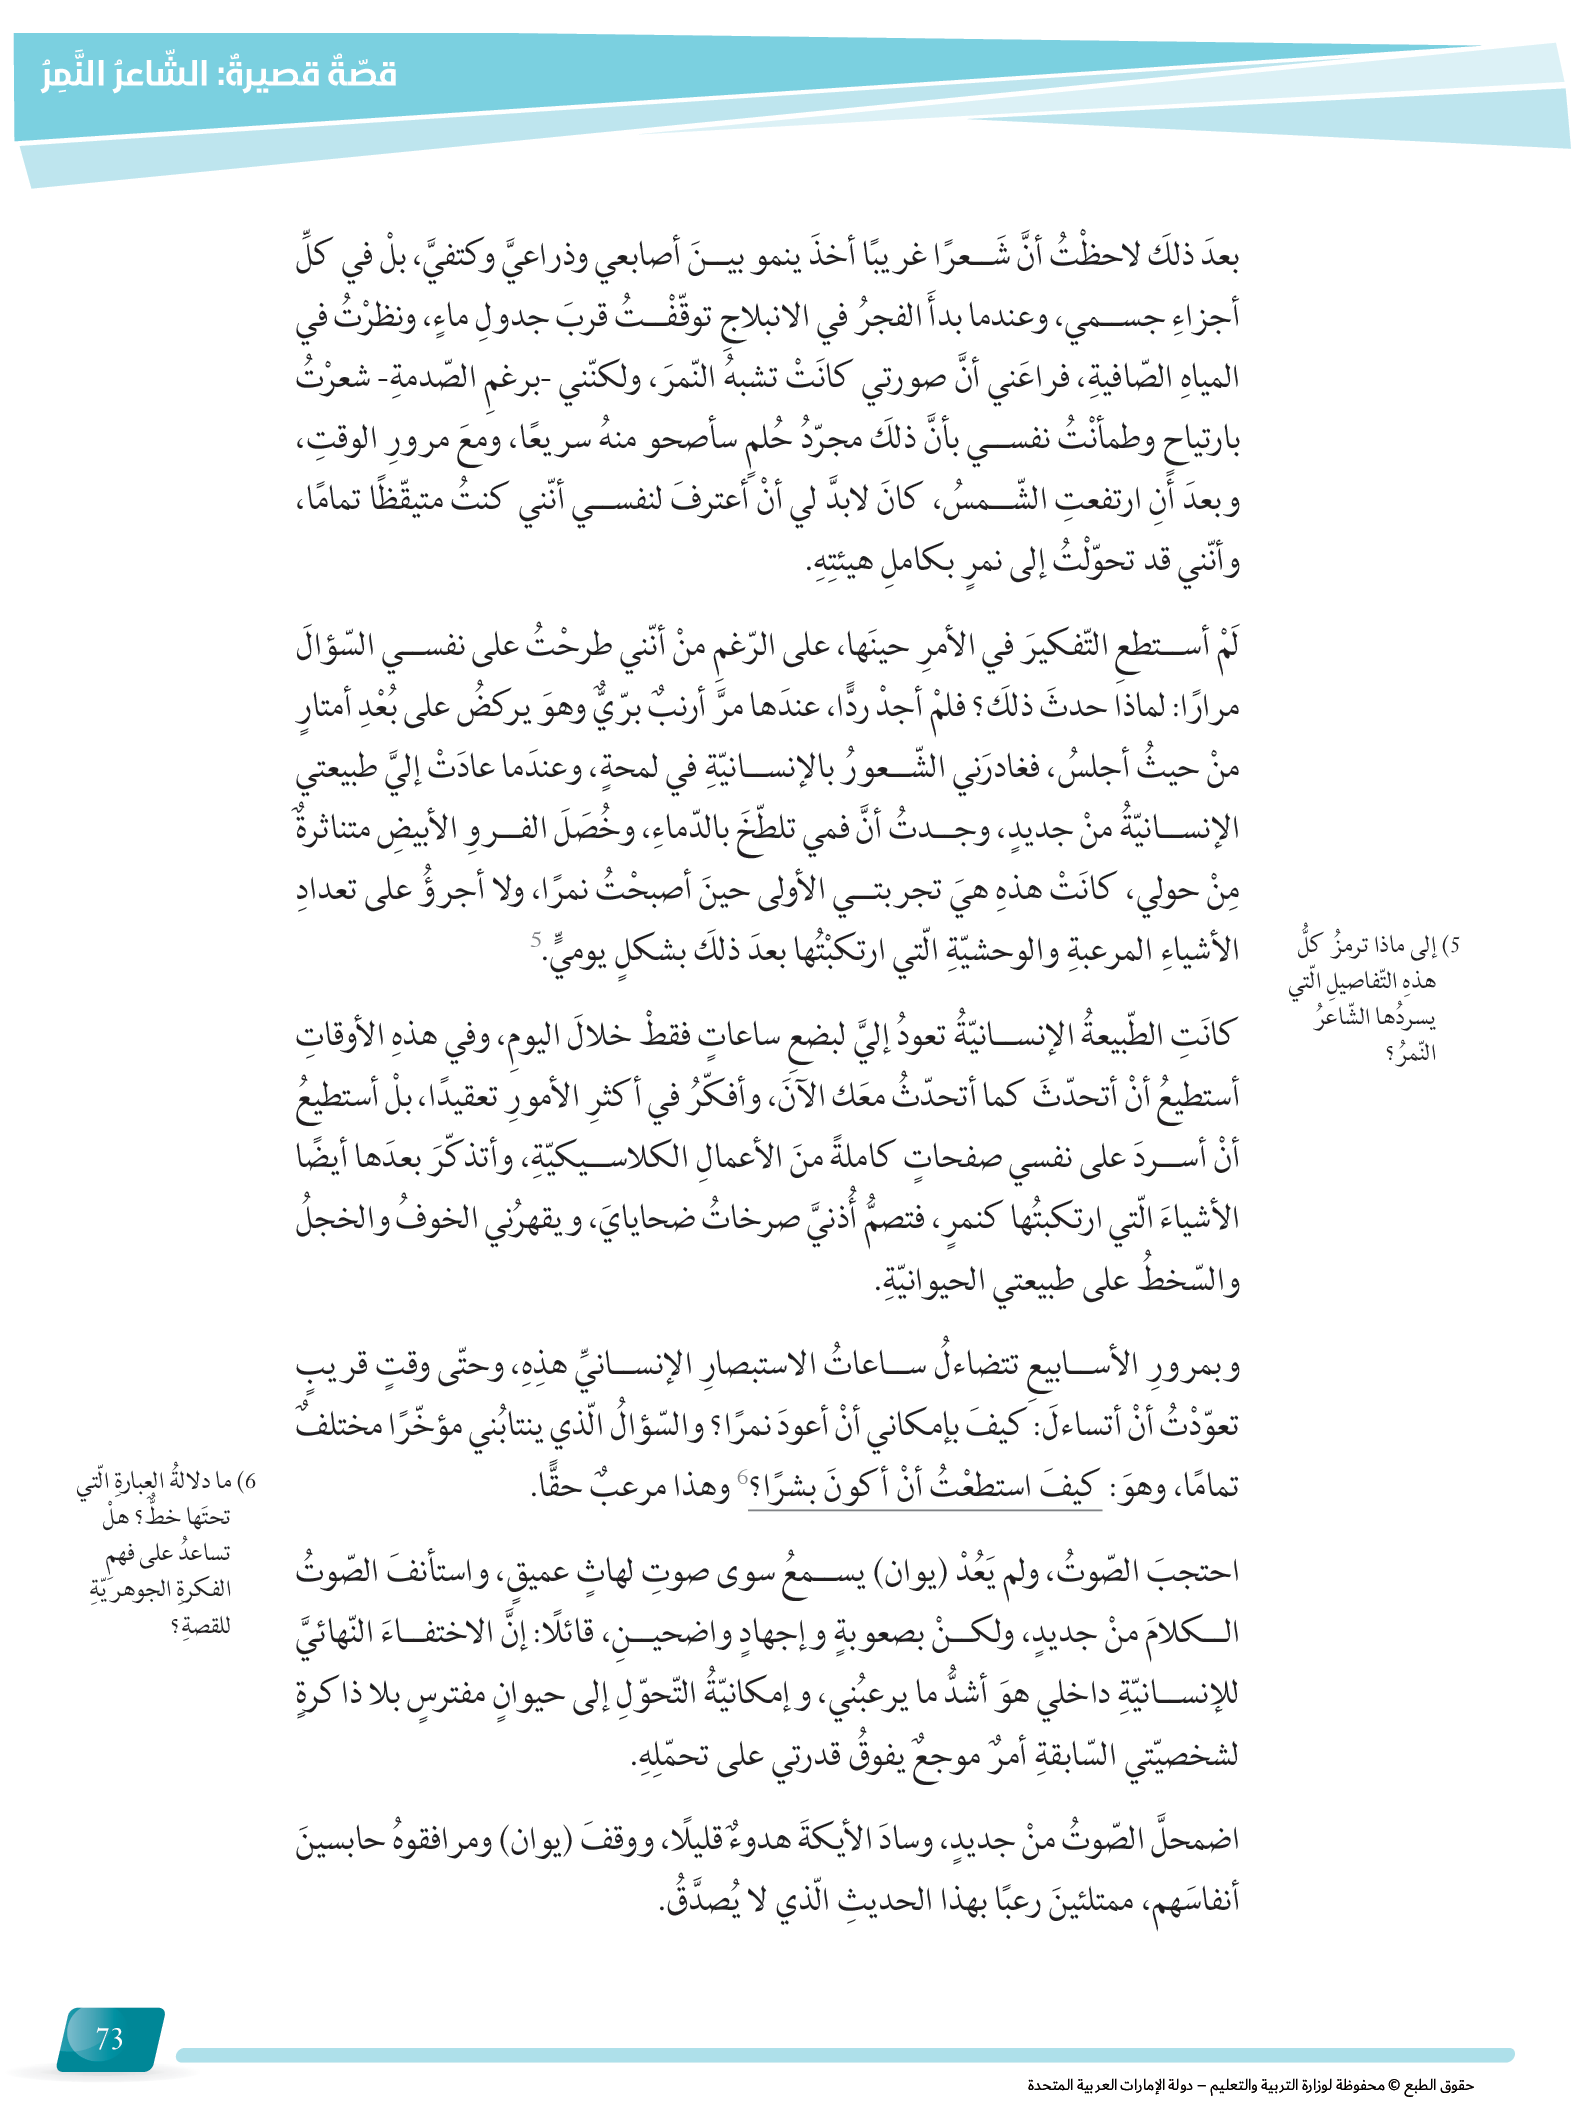 قصّةٌ قصيرةٌ: الشّاعرُ النَّمِرُ
بعدَ ذلكَ لاحظْتُ أنَّ شَعرًا غريبًا أخذَ ينمو بينَ أصابعي وذراعيَّ وكتفيَّ، بلْ في كلِّ
أجزاءِ جسمي، وعندما بدأَ الفجرُ في الانبلاجِ توقّفْتُ قربَ جدولِ ماءٍ، ونظرْتُ في
المياهِ الصّافيةِ، فراعَني أنَّ صورتي كانَتْ تشبهُ النّمرَ، ولكنّني -برغمِ الصّدمةِ- شعرْتُ
بارتياحٍ وطمأنْتُ نفسي بأنَّ ذلكَ مجرّدُ حُلمٍ سأصحو منهُ سريعًا، ومعَ مرورِ الوقتِ،
وبعدَ أنِ ارتفعتِ الشّمسُ، كانَ لابدَّ لي أنْ أعترفَ لنفسي أنّني كنتُ متيقّظًا تمامًا،
وأنّني قد تحوّلْتُ إلى نمرٍ بكاملِ هيئتِهِ.
لَمْ أستطعِ التّفكيرَ في الأمرِ حينَها، على الرّغمِ منْ أنّني طرحْتُ على نفسي السّؤالَ
مرارًا: لماذا حدثَ ذلكَ؟ فلمْ أجدْ ردًّا، عندَها مرَّ أرنبٌ برّيٌّ وهوَ يركضُ على بُعْدِ أمتارٍ
منْ حيثُ أجلسُ، فغادرَني الشّعورُ بالإنسانيّةِ في لمحةٍ، وعندَما عادَتْ إليَّ طبيعتي
الإنسانيّةُ منْ جديدٍ، وجدتُ أنَّ فمي تلطّخَ بالدّماءِ، وخُصَلَ الفروِ الأبيضِ متناثرةٌ
مِنْ حولي، كانَتْ هذهِ هيَ تجربتي الأولى حينَ أصبحْتُ نمرًا، ولا أجرؤُ على تعدادِ
الأشياءِ المرعبةِ والوحشيّةِ الّتي ارتكبْتُها بعدَ ذلكَ بشكلٍ يوميٍّ.5
5) إلى ماذا ترمزُ كلُّ
هذهِ التّفاصيلِ الّتي
يسردُها الشّاعرُ
النّمرُ؟
كانَتِ الطّبيعةُ الإنسانيّةُ تعودُ إليَّ لبضعِ ساعاتٍ فقطْ خلالَ اليومِ، وفي هذهِ الأوقاتِ
أستطيعُ أنْ أتحدّثَ كما أتحدّثُ معَك الآنَ، وأفكّرُ في أكثرِ الأمورِ تعقيدًا، بلْ أستطيعُ
أنْ أسردَ على نفسي صفحاتٍ كاملةً منَ الأعمالِ الكلاسيكيّةِ، وأتذكّرَ بعدَها أيضًا
الأشياءَ الّتي ارتكبتُها كنمرٍ، فتصمُّ أُذنيَّ صرخاتُ ضحايايَ، ويقهرُني الخوفُ والخجلُ
والسّخطُ على طبيعتي الحيوانيّةِ.
وبمرورِ الأسابيعِ تتضاءلُ ساعاتُ الاستبصارِ الإنسانيِّ هذِهِ، وحتّى وقتٍ قريبٍ
تعوّدْتُ أنْ أتساءلَ: كيفَ بإمكاني أنْ أعودَ نمرًا؟ والسّؤالُ الّذي ينتابُني مؤخّرًا مختلفٌ
تمامًا، وهوَ: كيفَ استطعْتُ أنْ أكونَ بشرًا؟6 وهذا مرعبٌ حقًّا.
6) ما دلالةُ العبارةِ الّتي
تحتَها خطٌّ؟ هلْ
تساعدُ على فهمِ
الفكرةِ الجوهريّةِ
للقصةِ؟
احتجبَ الصّوتُ، ولم يَعُدْ (يوان) يسمعُ سوى صوتِ لهاثٍ عميقٍ، واستأنفَ الصّوتُ
الكلامَ منْ جديدٍ، ولكنْ بصعوبةٍ وإجهادٍ واضحينِ، قائلًا: إنَّ الاختفاءَ النّهائيَّ
للإنسانيّةِ داخلي هوَ أشدُّ ما يرعبُني، وإمكانيّةُ التّحوّلِ إلى حيوانٍ مفترسٍ بلا ذاكرةٍ
لشخصيّتي السّابقةِ أمرٌ موجعٌ يفوقُ قدرتي على تحمّلِهِ.
اضمحلَّ الصّوتُ منْ جديدٍ، وسادَ الأيكةَ هدوءٌ قليلًا، ووقفَ (يوان) ومرافقوهُ حابسينَ
أنفاسَهم، ممتلئينَ رعبًا بهذا الحديثِ الّذي لا يُصدَّقُ.
73
حقوق الطبع © محفوظة لوزارة التربية والتعليم – دولة الإمارات العربية المتحدة